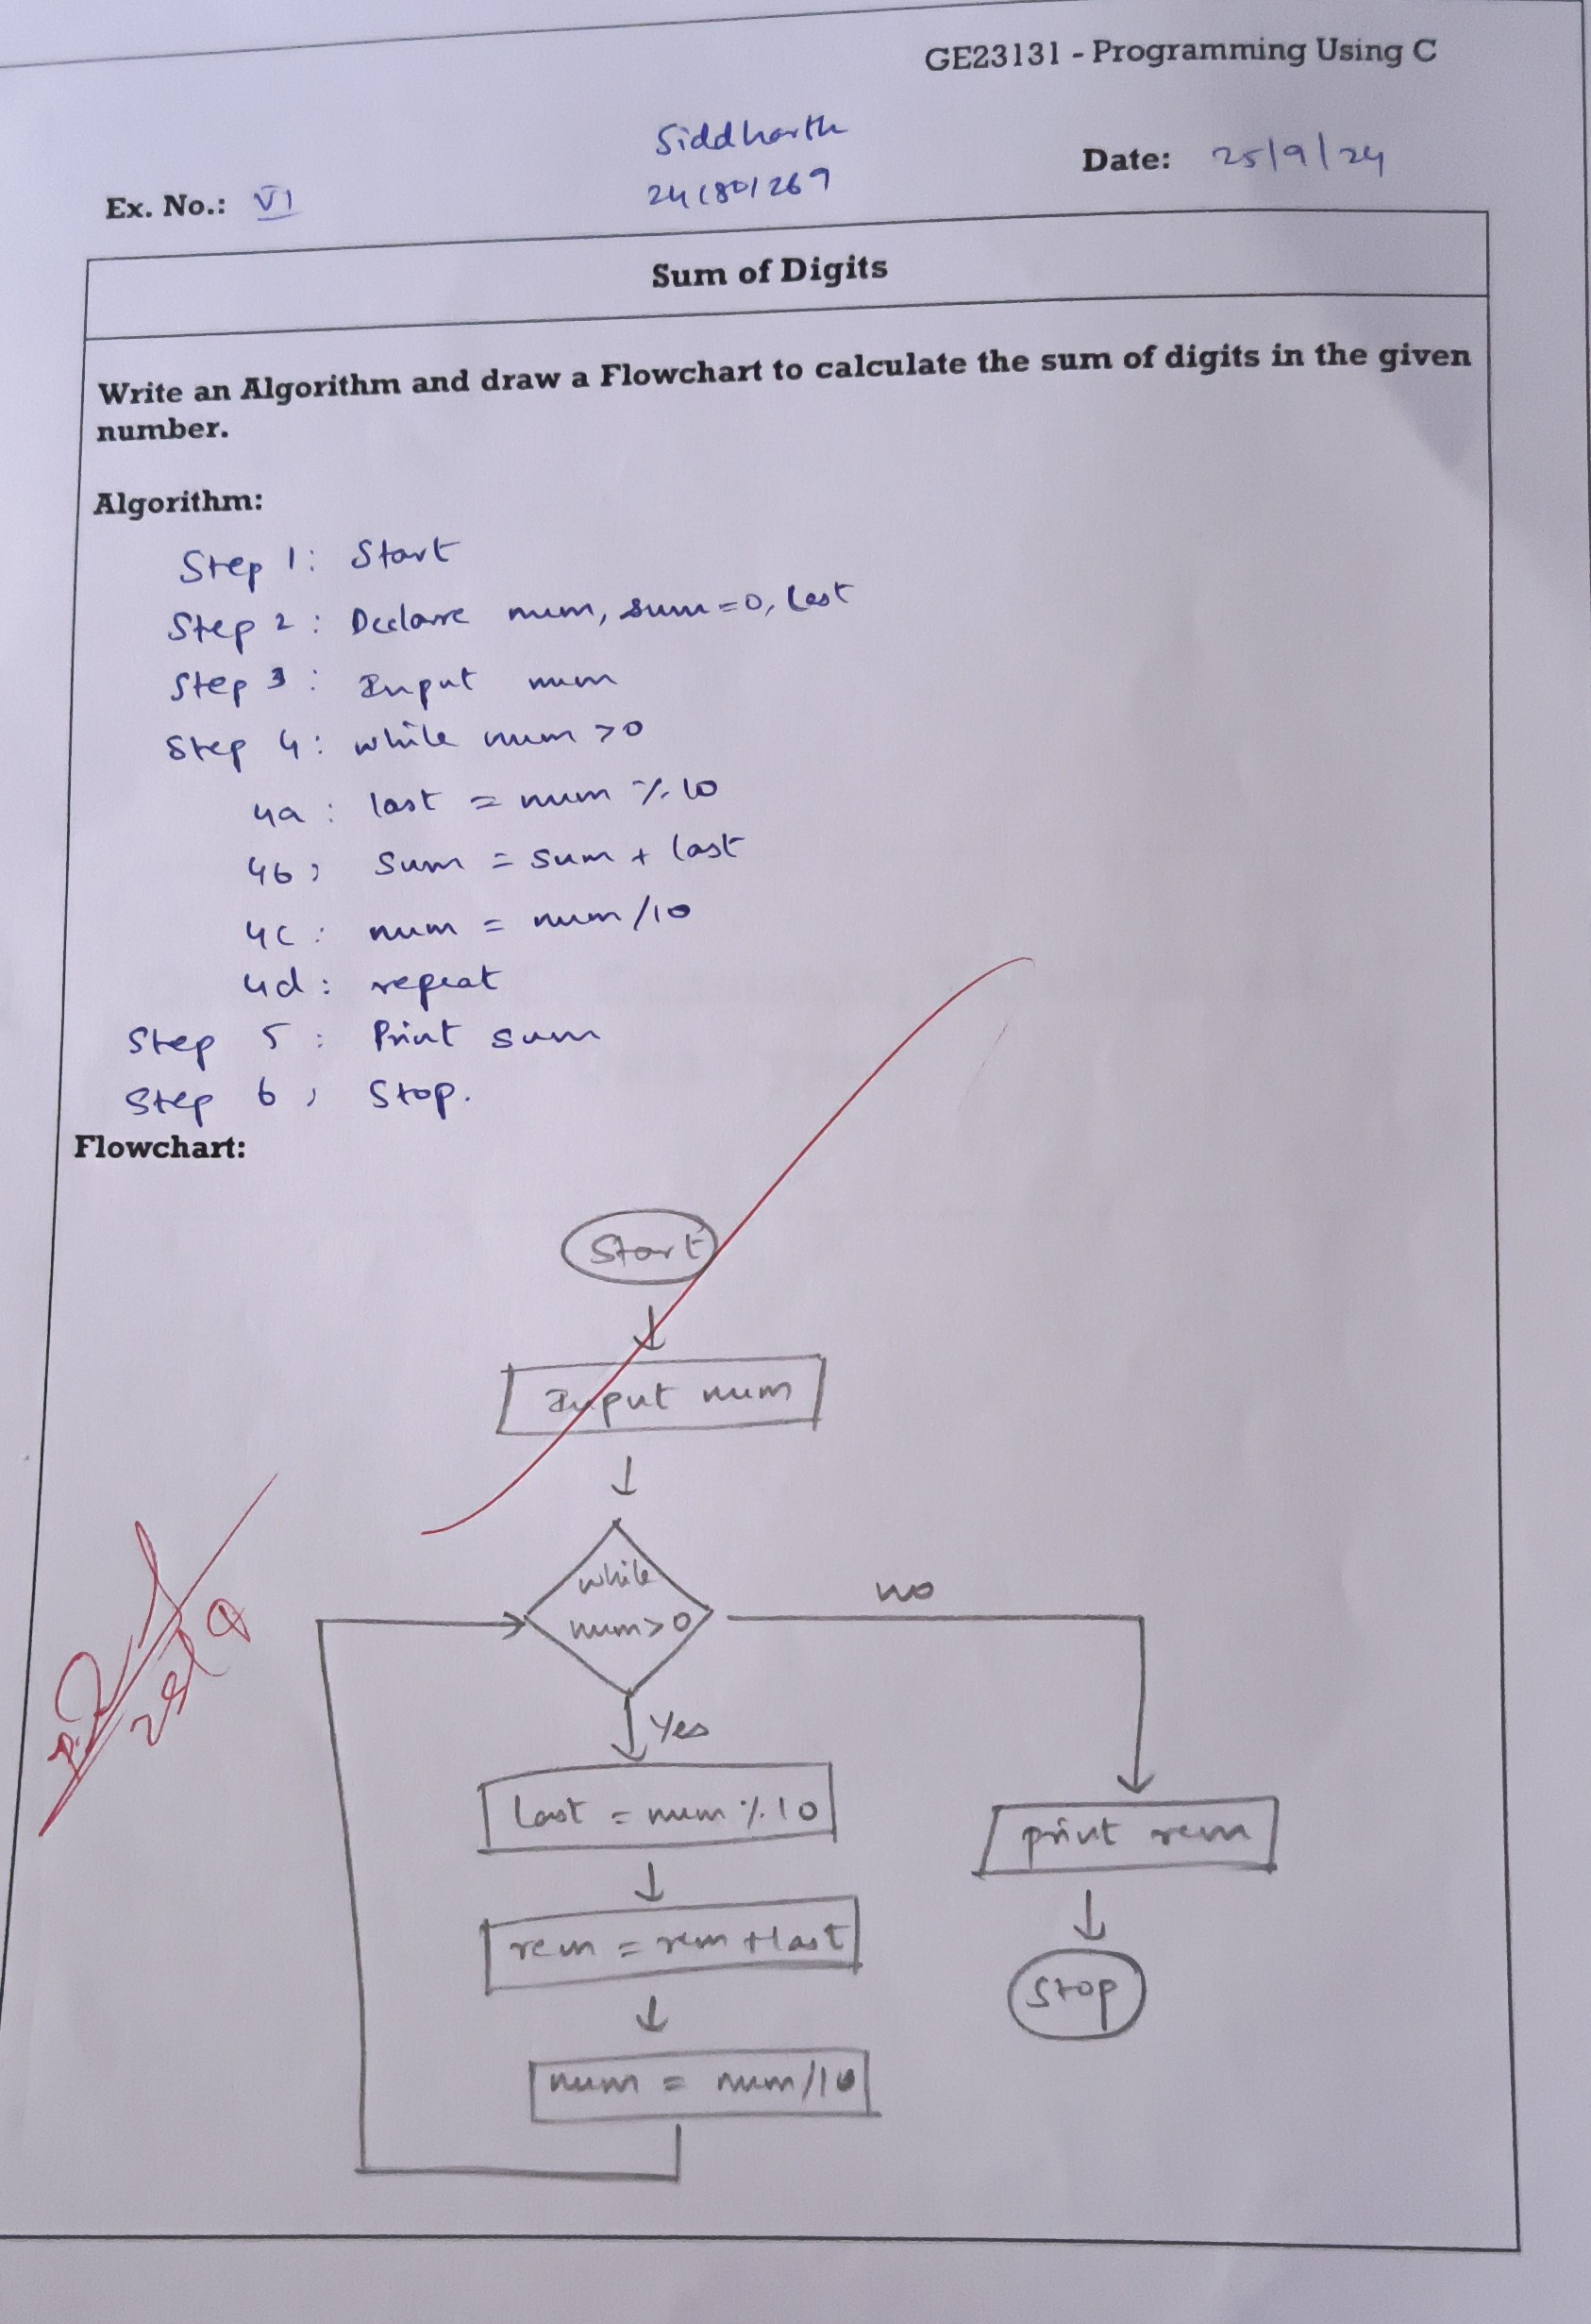 GE23131 - Programming Using C
Siddharth
241801269
Date: 25/9/24
Ex. No.: VI
Sum of Digits
Write an Algorithm and draw a Flowchart to calculate the sum of digits in the given
number.
Algorithm:
Step 1: Start
Step 2: Declare num, sum=0, last
Step 3: Input num
Step 4: while num >0
4a: last = num % 10
4b: sum = sum + last
4c: num = num/10
4d: repeat
Step 5: Print sum
Step 6: Stop.
Flowchart:
Start
Input num
while
num>0
no
Yes
last = num % 10
print rem
rem = rem + last
Stop
num = num/10
25/9